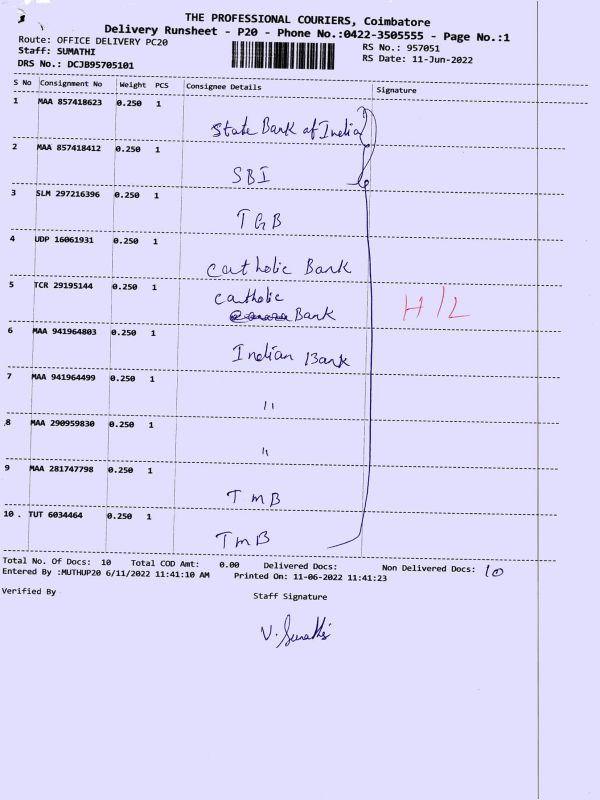 THE PROFESSIONAL COURIERS, Coimbatore
Delivery Runsheet - P20 - Phone No.:0422-3505555 - Page No.:1
Route: OFFICE DELIVERY PC20
Staff: SUMATHI
DRS No.: DCJB95705101
RS No.: 957051
RS Date: 11-Jun-2022
S No Consignment No Weight PCS Consignee Details Signature
1 MAA 857418623 0.250 1 State Bank of India
2 MAA 857418412 0.250 1 SBI
3 SLM 297216396 0.250 1 TGB
4 UDP 16061931 0.250 1 Catholic Bank
5 TCR 29195144 0.250 1 Catholic
Bank
H/L
6 MAA 941964803 0.250 1 Indian Bank
7 MAA 941964499 0.250 1 "
8 MAA 290959830 0.250 1 "
9 MAA 281747798 0.250 1 TMB
10 . TUT 6034464 0.250 1 TMB
Total No. Of Docs: 10 Total COD Amt: 0.00 Delivered Docs: Non Delivered Docs: 10
Entered By :MUTHUP20 6/11/2022 11:41:10 AM Printed On: 11-06-2022 11:41:23
Verified By
Staff Signature
V. Sumathi